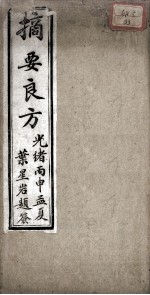 摘要良方
光緒丙申孟夏
葉星岩題簽